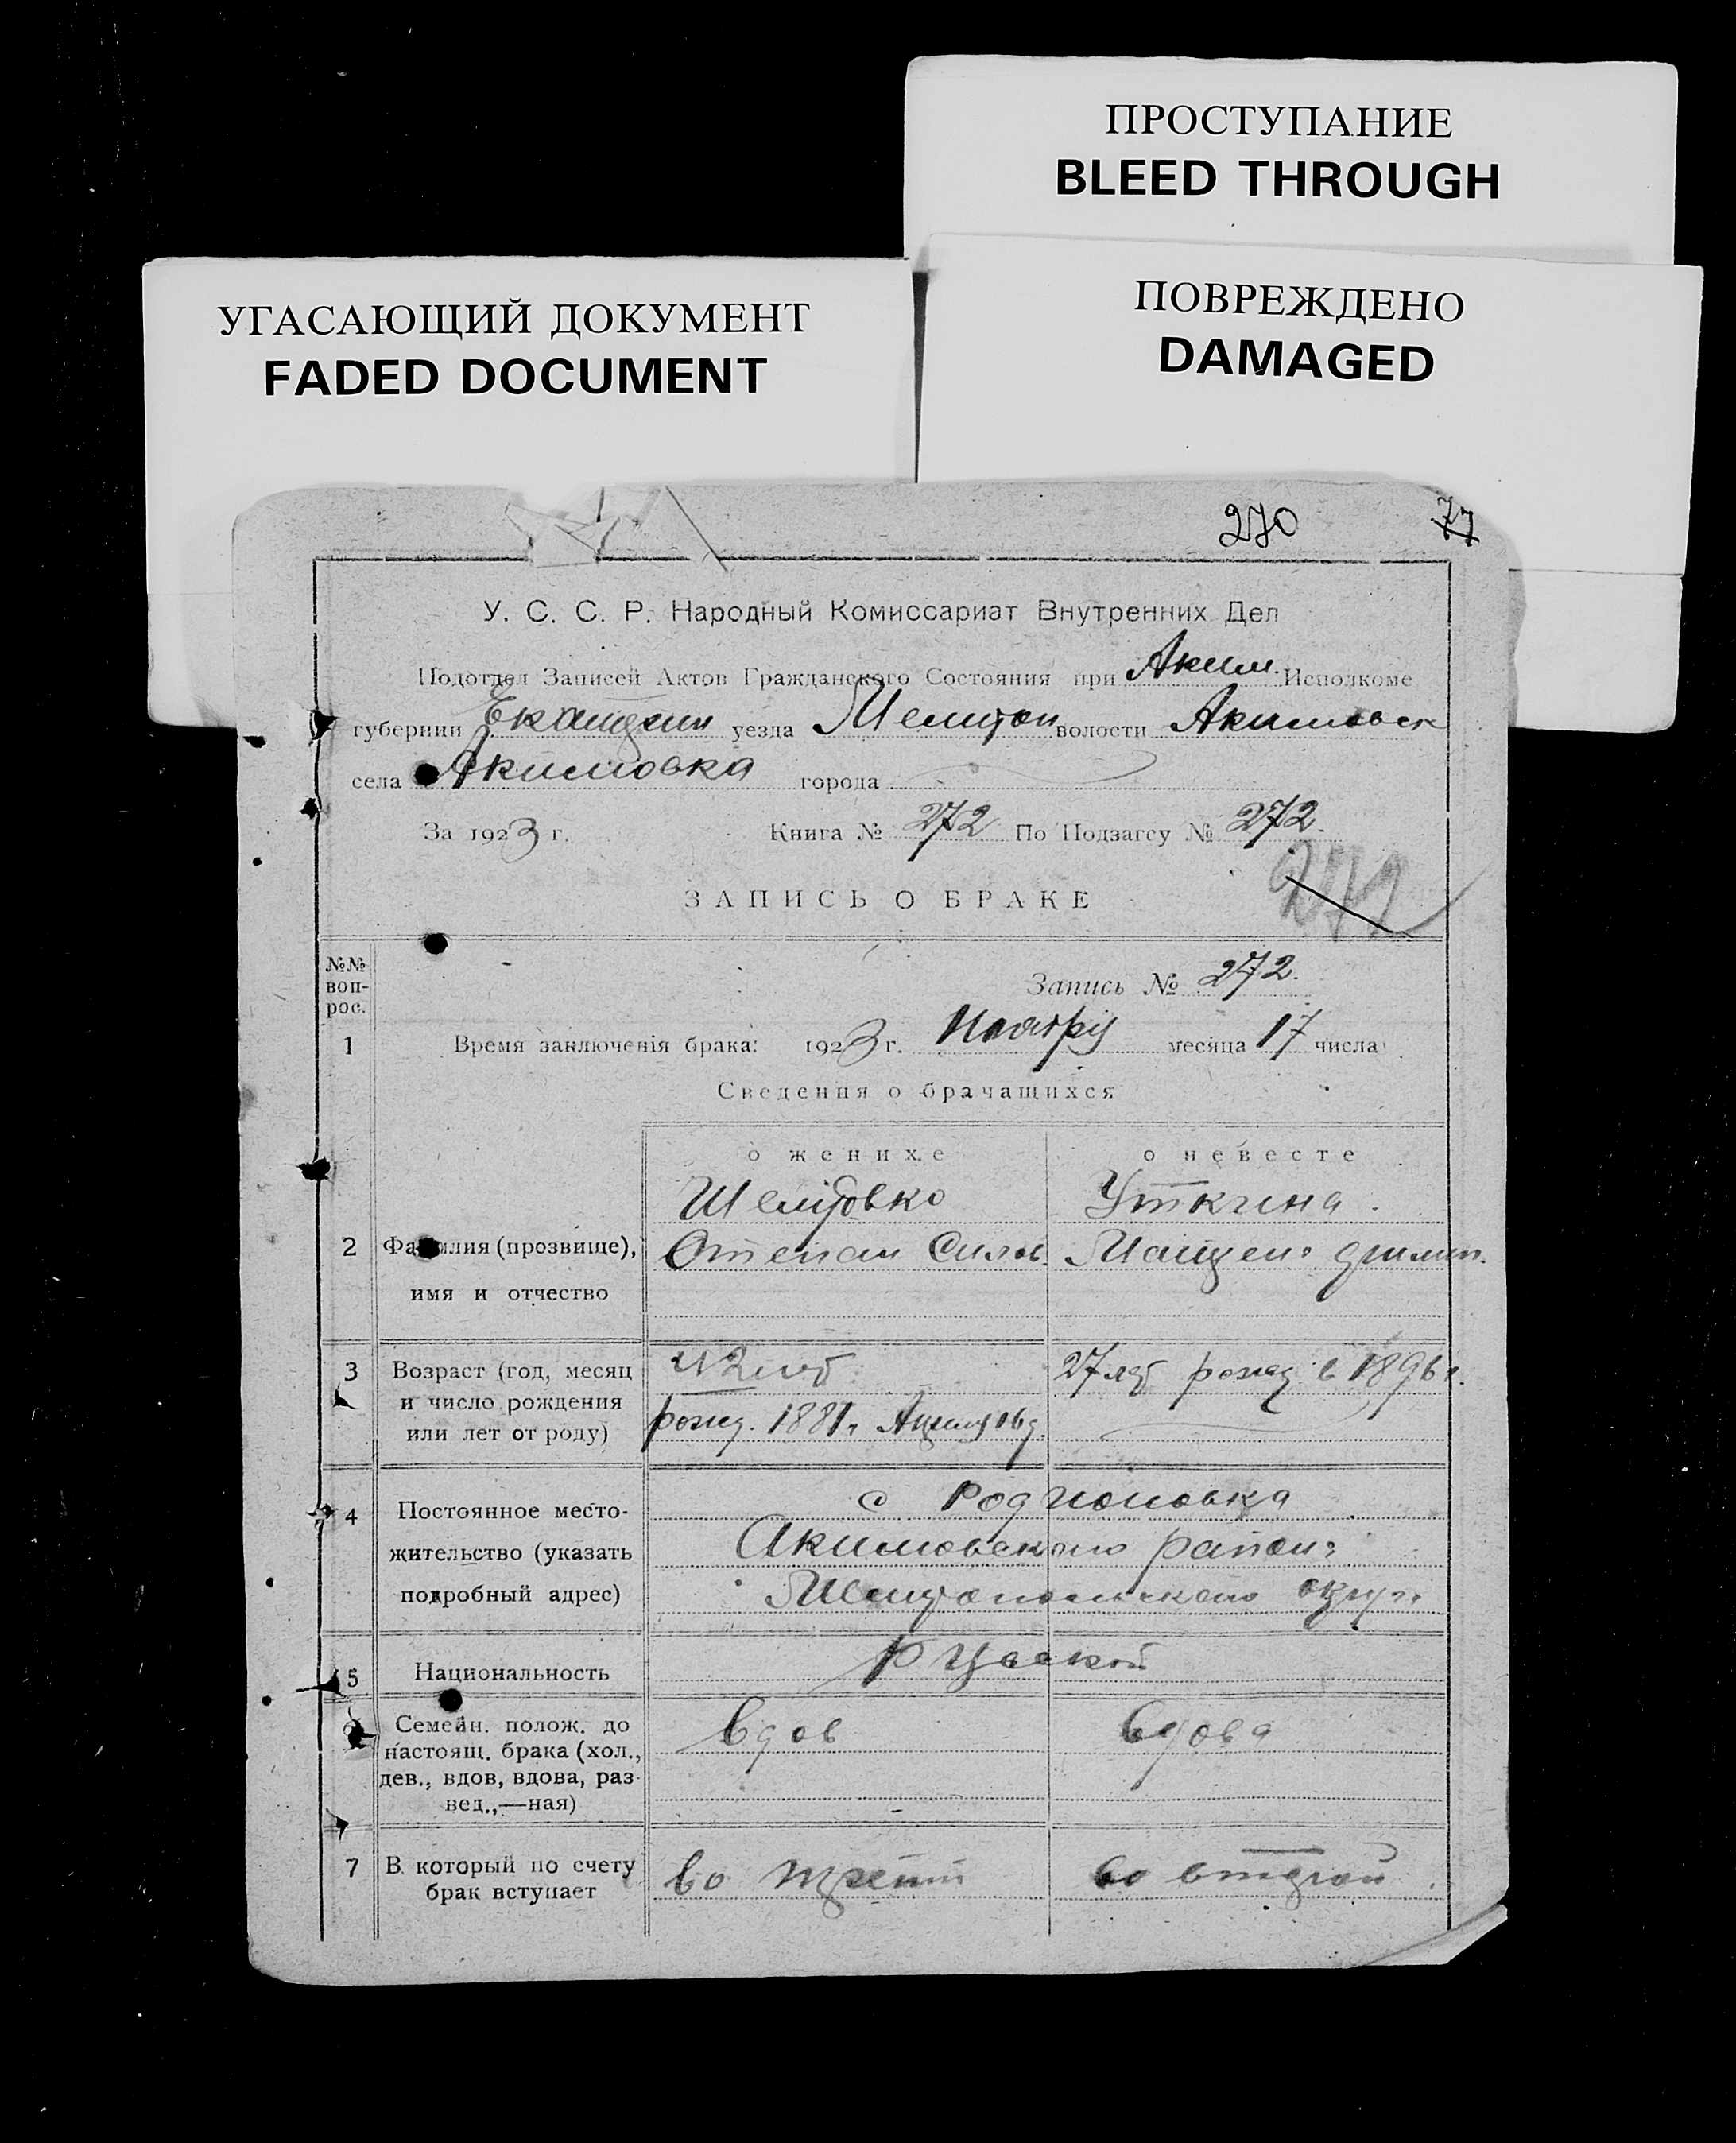 ПРОСТУПАНИЕ
BLEED THROUGH
УГАСАЮЩИЙ ДОКУМЕНТ
FADED DOCUMENT
ПОВРЕЖДЕНО
DAMAGED
270 77
У. С. С. Р. Народный Комиссариат Внутренних Дел
Подотдел Записей Актов Гражданского Состояния при Аким. Исполкоме
губернии уезда волости Акимовск
села Акимовка города
За 1923 г. Книга № 272 По Подзагсу № 272.
ЗАПИСЬ О БРАКЕ
272
№№ воп- рос.
Запись № 272.
1 Время заключенія брака: 1923 г. месяца 17 числа
Сведения о брачащихся
о женихе о невесте
2 Фамилия (прозвище),
Степан
имя и отчество
3 Возраст (год, месяц 42 27 рожд в 1896 г.
и число рождения
рожд. 1881 г.
или лет от роду)
4 Постоянное место- с Родионовка
жительство (указать Акимовского район
подробный адрес) Мелитопольского округ
5 Национальность Русской
6 Семейн. полож. до вдов вдова
настоящ. брака (хол.,
дев., вдов, вдова, раз-
вед.,—ная)
7 В который по счету во второй
брак вступает